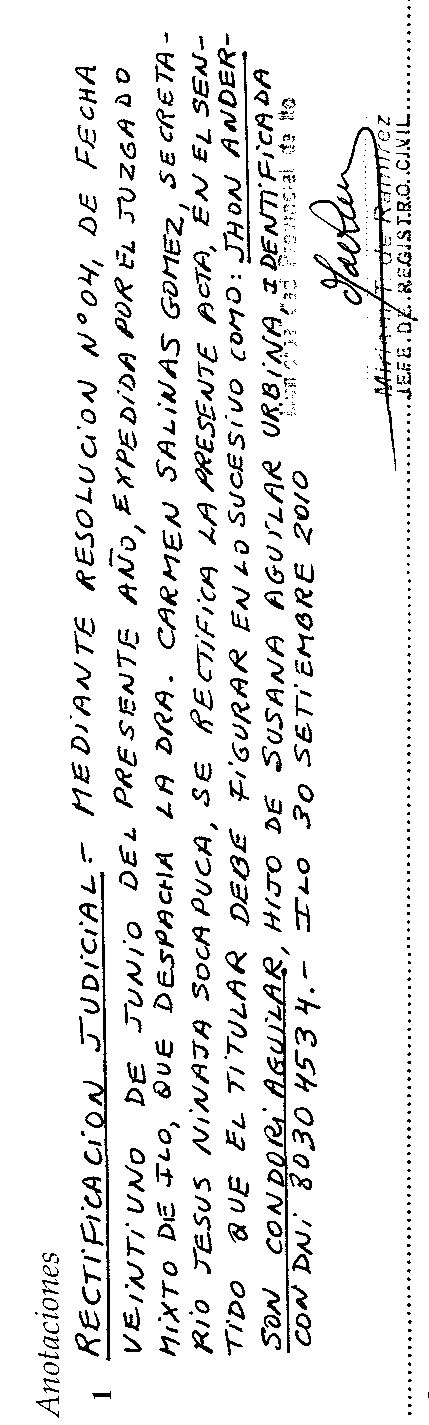 Anotaciones
1 RECTIFICACION JUDICIAL - MEDIANTE RESOLUCION N°04, DE FECHA
VEINTIUNO DE JUNIO DEL PRESENTE AÑO, EXPEDIDA POR EL JUZGADO
MIXTO DE ILO, QUE DESPACHA LA DRA. CARMEN SALINAS GOMEZ, SECRETA-
RIO JESUS NINAJA SOCAPUCA, SE RECTIFICA LA PRESENTE ACTA, EN EL SEN-
TIDO QUE EL TITULAR DEBE FIGURAR EN LO SUCESIVO COMO: JHON ANDER-
SON CONDORI AGUILAR, HIJO DE SUSANA AGUILAR URBINA IDENTIFICADA
CON DNI 80304534.- ILO 30 SETIEMBRE 2010
Provincial de Ilo
de Ramirez
JEFE DE REGISTRO CIVIL